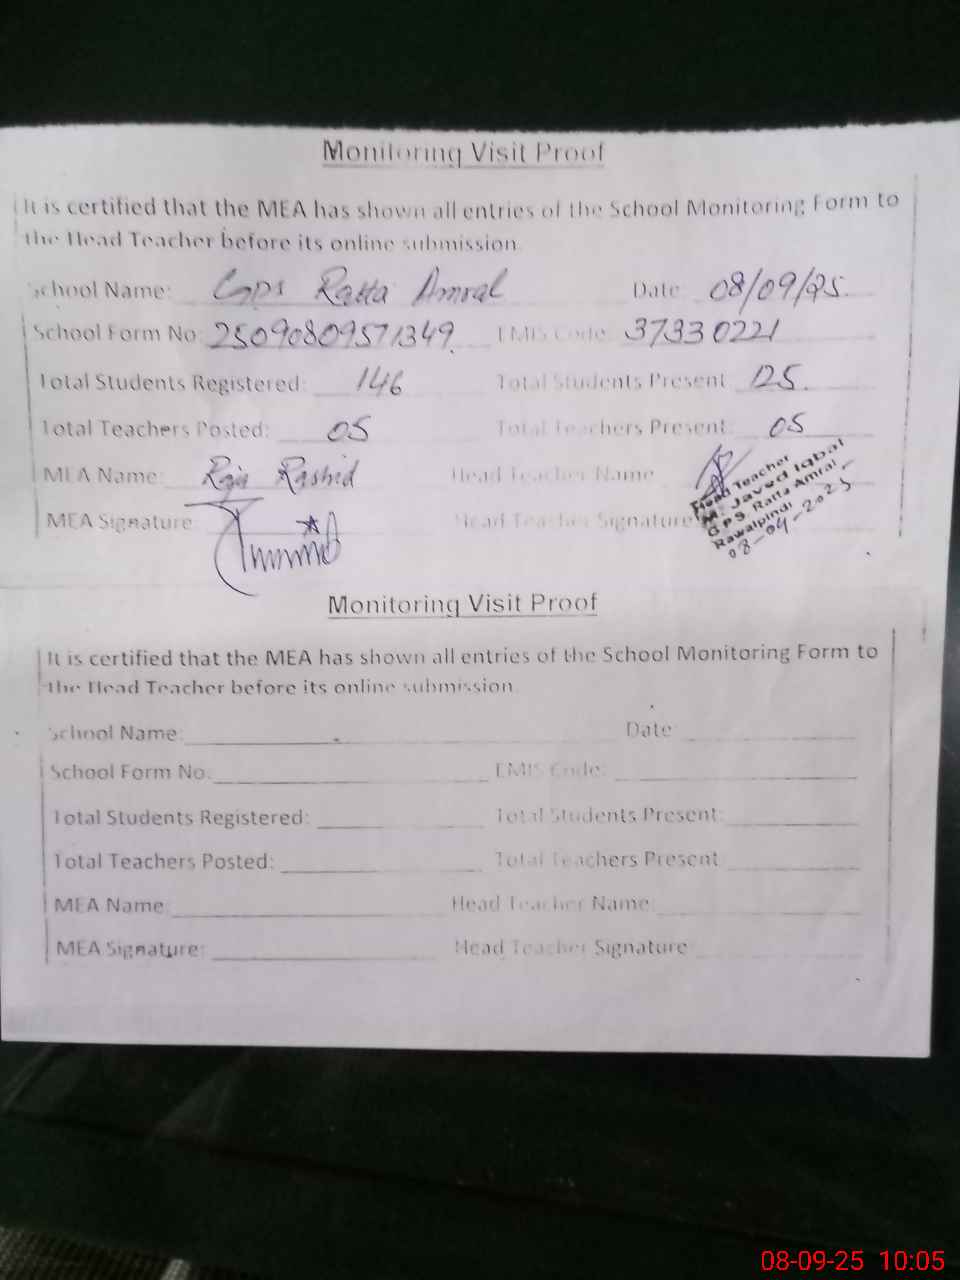 Monitoring Visit Proof
It is certified that the MEA has shown all entries of the School Monitoring Form to
the Head Teacher before its online submission.
School Name: GPS Ratta Amral Date: 08/09/25.
School Form No: 25090809571349. EMIS Code: 37330221
Total Students Registered: 146 Total Students Present: 125.
Total Teachers Posted: 05 Total Teachers Present: 05
MEA Name: Raja Rashid Head Teacher Name
MEA Signature: Head Teacher Signature
Head Teacher
M. Javed Iqbal
GPS Ratta Amral
Rawalpindi
08-09-2025
Monitoring Visit Proof
It is certified that the MEA has shown all entries of the School Monitoring Form to
the Head Teacher before its online submission.
School Name: Date:
School Form No. EMIS Code:
Total Students Registered: Total Students Present:
Total Teachers Posted: Total Teachers Present
MEA Name: Head Teacher Name:
MEA Signature: Head Teacher Signature
08-09-25 10:05